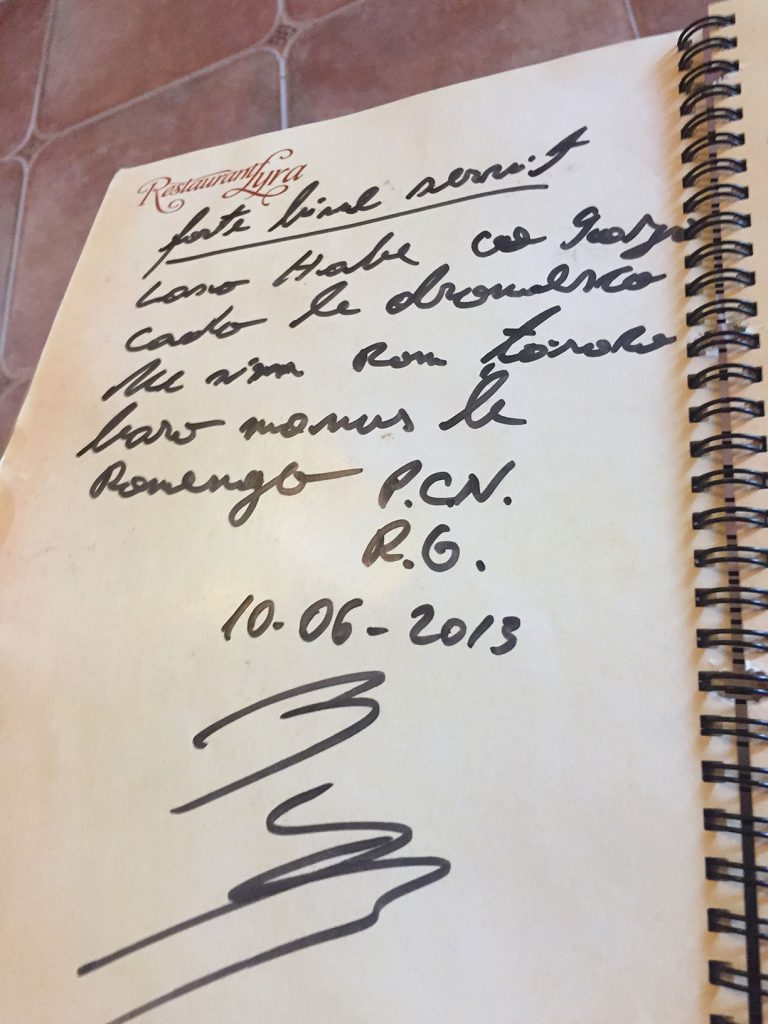 Restaurant Lyra
forte bine servit
Laso Habe
cado le dromesko
Me sim Rom
baro manus le
Romengo P.C.N.
R.G.
10-06-2013